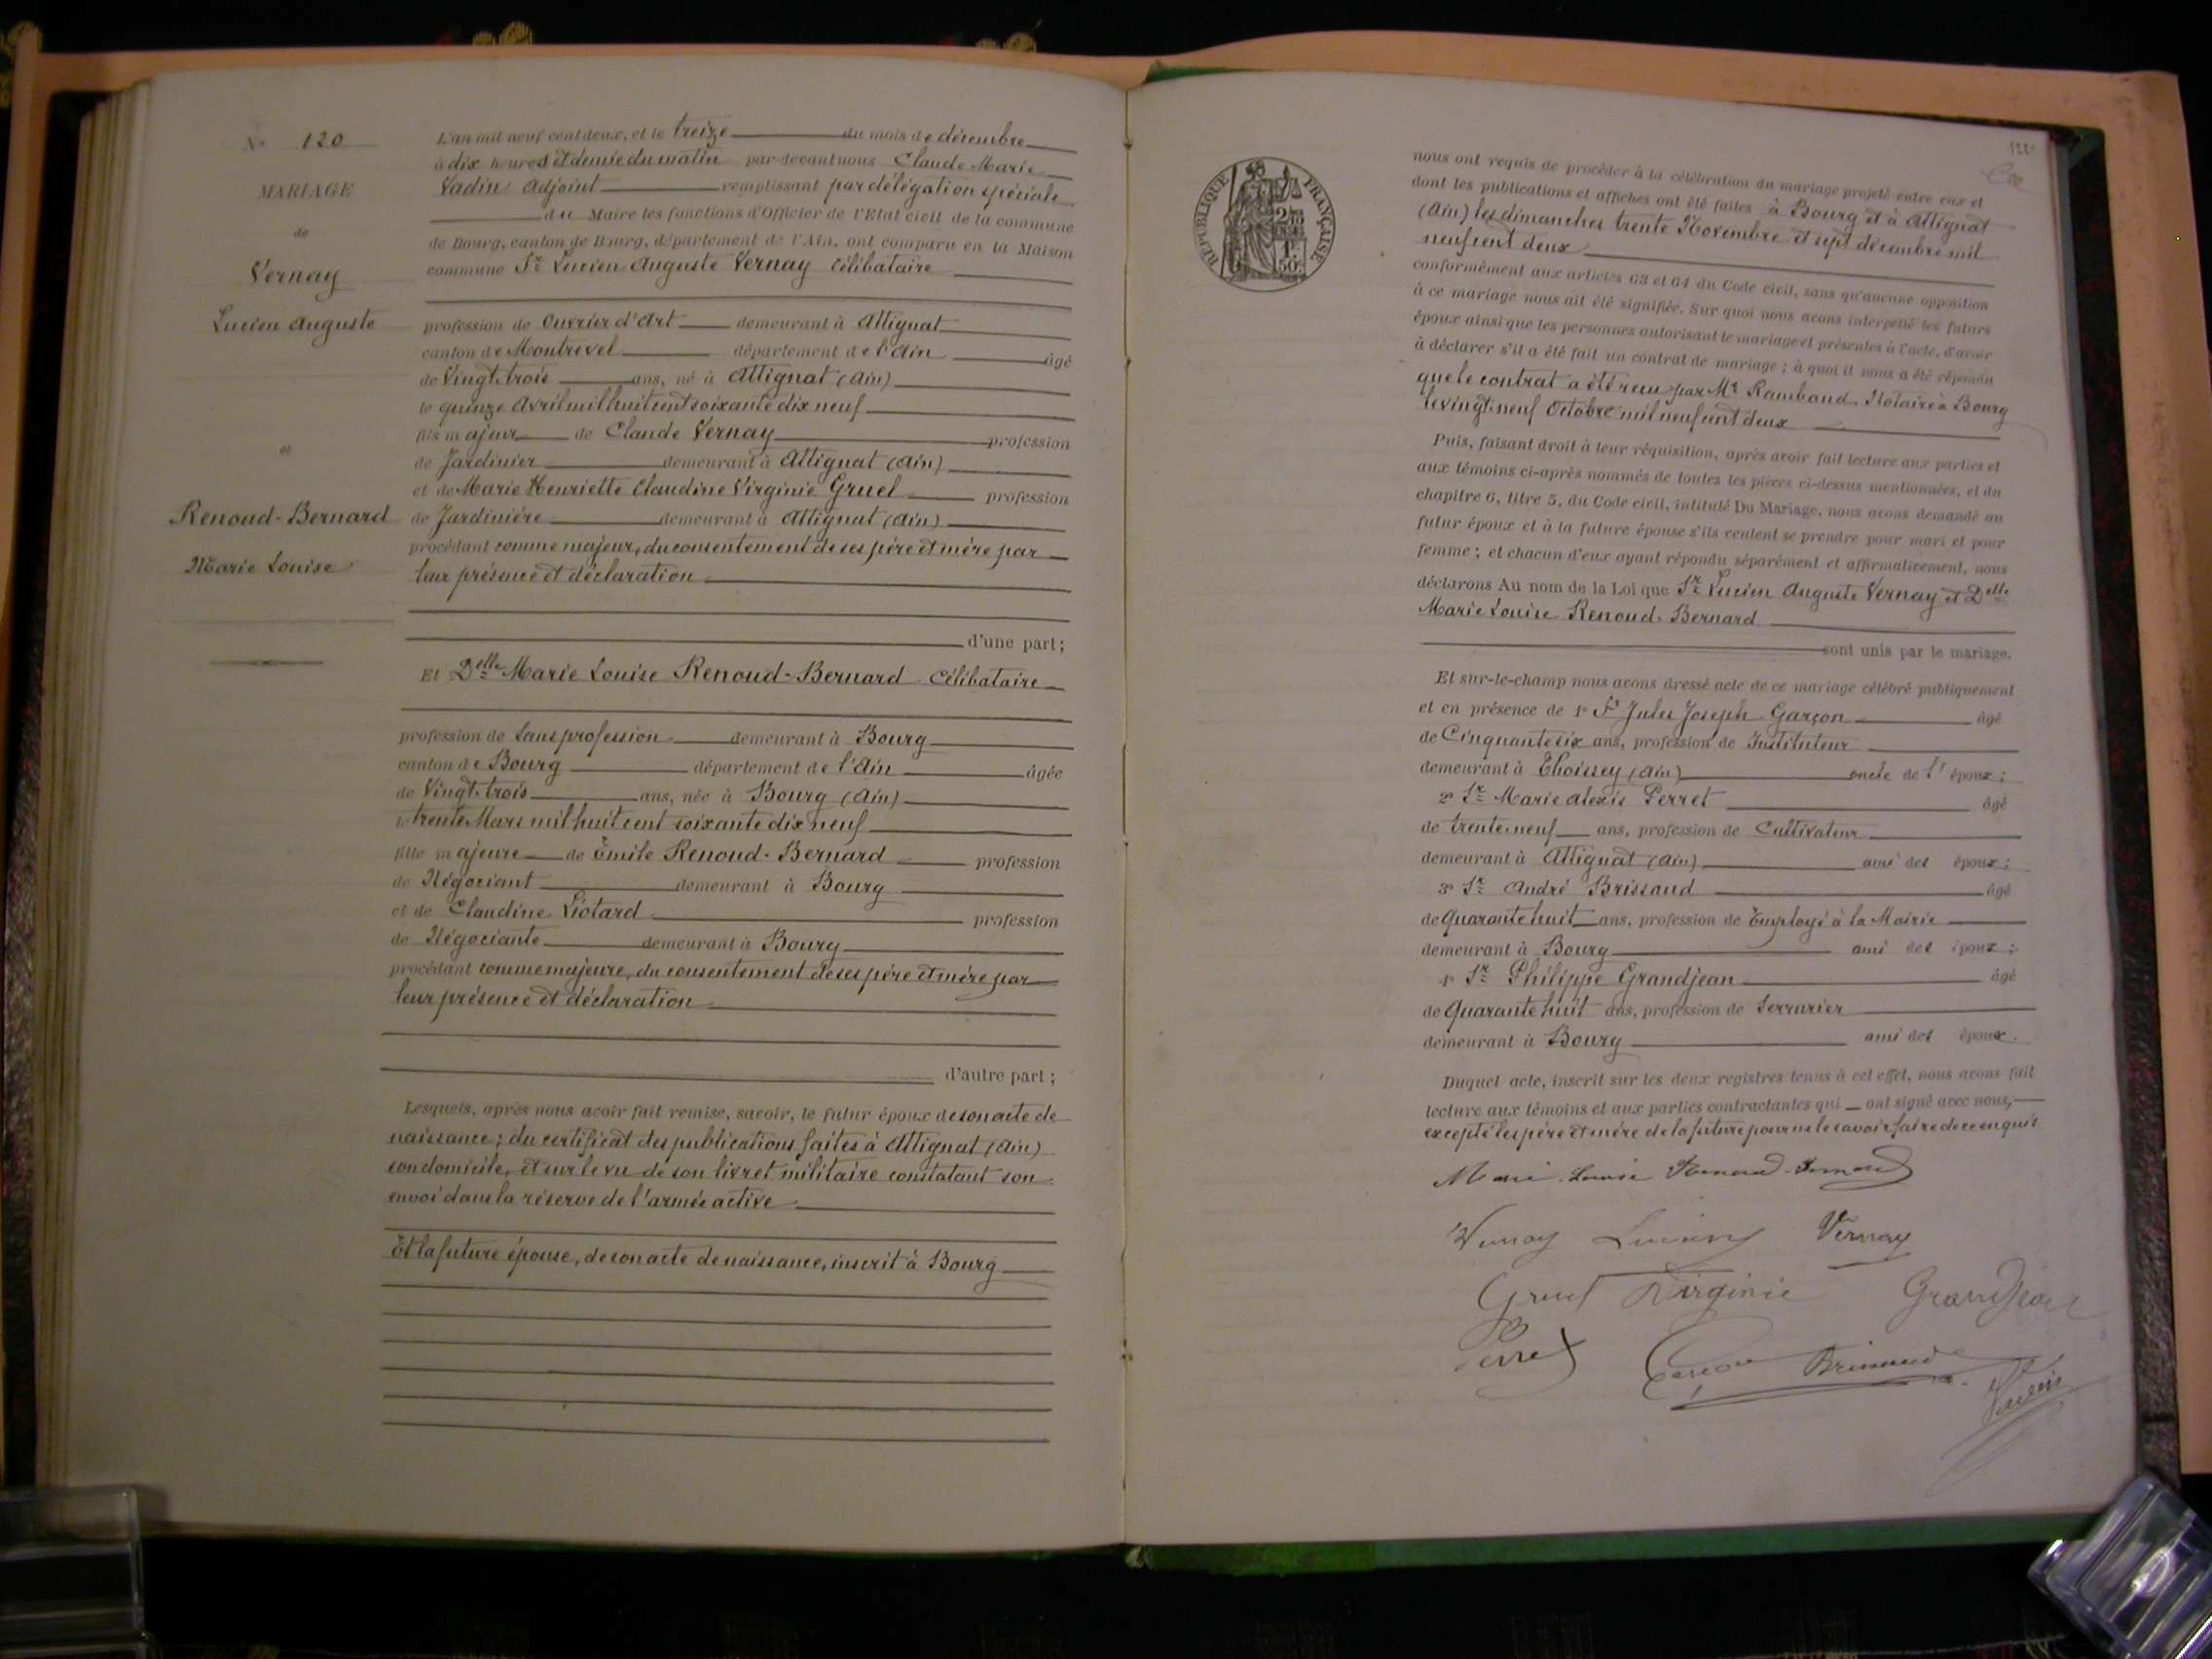 N° 120
MARIAGE
de
Vernay
Lucien Auguste
et
Renoud-Bernard
Marie Louise
L'an mil neuf cent deux, et le treize du mois de décembre
à dix heures et demie du matin par-devant nous Claude Marie
Vadin Adjoint remplissant par délégation spéciale
du Maire les fonctions d'Officier de l'Etat civil de la commune
de Bourg, canton de Bourg, département de l'Ain, ont comparu en la Maison
commune Sr Lucien Auguste Vernay célibataire
profession de Ouvrier d'Art demeurant à Attignat
canton de Montrevel département de l'Ain âgé
de Vingt-trois ans, né à Attignat (Ain)
le quinze Avril mil huit cent soixante dix neuf
fils majeur de Claude Vernay profession
de Jardinier demeurant à Attignat (Ain)
et de Marie Henriette Claudine Virginie Gruel profession
de Jardinière demeurant à Attignat (Ain)
procédant comme majeur, du consentement de ses père et mère par
leur présence et déclaration
d'une part;
Et Delle Marie Louise Renoud-Bernard Célibataire
profession de Sans profession demeurant à Bourg
canton de Bourg département de l'Ain âgée
de Vingt-trois ans, née à Bourg (Ain)
le trente Mars mil huit cent soixante dix neuf
fille majeure de Emile Renoud-Bernard profession
de Négociant demeurant à Bourg
et de Claudine Liotard profession
de Négociante demeurant à Bourg
procédant comme majeure, du consentement de ses père et mère par
leur présence et déclaration
d'autre part;
Lesquels, après nous avoir fait remise, savoir, le futur époux de son acte de
naissance; du certificat des publications faites à Attignat (Ain)
son domicile, et sur le vu de son livret militaire constatant son
envoi dans la réserve de l'armée active
Et la future épouse, de son acte de naissance, inscrit à Bourg
RÉPUBLIQUE FRANÇAISE
nous ont requis de procéder à la célébration du mariage projeté entre eux et
dont les publications et affiches ont été faites à Bourg et à Attignat
(Ain) les dimanches trente Novembre et sept décembre mil
neuf cent deux
conformément aux articles 63 et 64 du Code civil, sans qu'aucune opposition
à ce mariage nous ait été signifiée. Sur quoi nous avons interpellé les futurs
époux ainsi que les personnes autorisant le mariage et présentes à l'acte, d'avoir
à déclarer s'il a été fait un contrat de mariage; à quoi il nous a été répondu
que le contrat a été reçu par Me Rambaud, Notaire à Bourg
le vingt-neuf Octobre mil neuf cent deux
Puis, faisant droit à leur réquisition, après avoir fait lecture aux parties et
aux témoins ci-après nommés de toutes les pièces ci-dessus mentionnées, et du
chapitre 6, titre 5, du Code civil, intitulé Du Mariage, nous avons demandé au
futur époux et à la future épouse s'ils veulent se prendre pour mari et pour
femme; et chacun d'eux ayant répondu séparément et affirmativement, nous
déclarons Au nom de la Loi que Sr Lucien Auguste Vernay et Delle
Marie Louise Renoud-Bernard
sont unis par le mariage.
Et sur-le-champ nous avons dressé acte de ce mariage célébré publiquement
et en présence de 1° Sr Jules Joseph Garçon âgé
de Cinquante six ans, profession de Instituteur
demeurant à Thoissey (Ain) oncle de l'époux;
2° Sr Marie Alexis Perret âgé
de trente-neuf ans, profession de Cultivateur
demeurant à Attignat (Ain) ami des époux;
3° Sr André Brissaud âgé
de Quarante huit ans, profession de Employé à la Mairie
demeurant à Bourg ami des époux;
4° Sr Philippe Grandjean âgé
de Quarante huit ans, profession de Serrurier
demeurant à Bourg ami des époux.
Duquel acte, inscrit sur les deux registres tenus à cet effet, nous avons fait
lecture aux témoins et aux parties contractantes qui ont signé avec nous,
excepté les père et mère de la future pour ne le savoir faire de ce enquis
Marie Louise Renoud-Bernard
Vernay Lucien Vernay
Gruel Virginie Grandjean
Perret Garçon Brissaud
Vadin